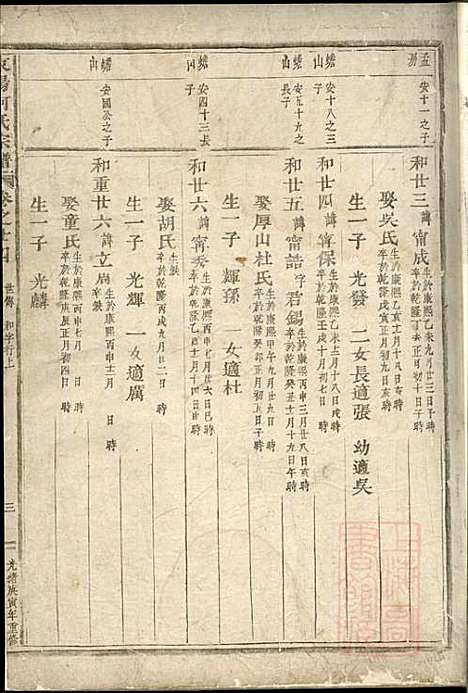 孟
安十一之子
和廿三 諱甯成 生於康熙乙未九月廿三日子時 卒於乾隆 正月初十日子時
娶吳氏 生於康熙乙亥十月十八日亥時 卒於乾隆 九月初九日 時
生一子 光發 二女長適張 幼適吳
蟾山
安十八之三子
和廿四 諱甯保 生於康熙乙未十二月十八日戌時 卒於乾隆壬戌十月初七日 時
蟾山
安五十九之長子
和廿五 諱甯誥 字君錫 生於康熙丙申三月廿八日亥時 卒於乾隆癸丑十一月十九日午時
娶厚山杜氏 生於康熙甲午九月廿九日 時 卒於乾隆癸卯十一月初五日子時
生一子 輝孫 一女適杜
安四十三長子
和廿六 諱甯秀 生於康熙丙申七月廿六日巳時 卒於乾隆乙酉十月十四日 時
娶胡氏 生缺 卒於乾隆丙戌九月廿二日 時
生一子 光輝 一女適厲
蟾山
安國公之子
和重廿六 諱立 生於康熙丙申十二月 日 時 卒缺
娶童氏 生於康熙 日 時 卒於乾隆庚辰正月初四日 時
生一子 光麟
何氏宗譜 卷之廿四 世傳 和字行上 三 光緒庚寅年重修